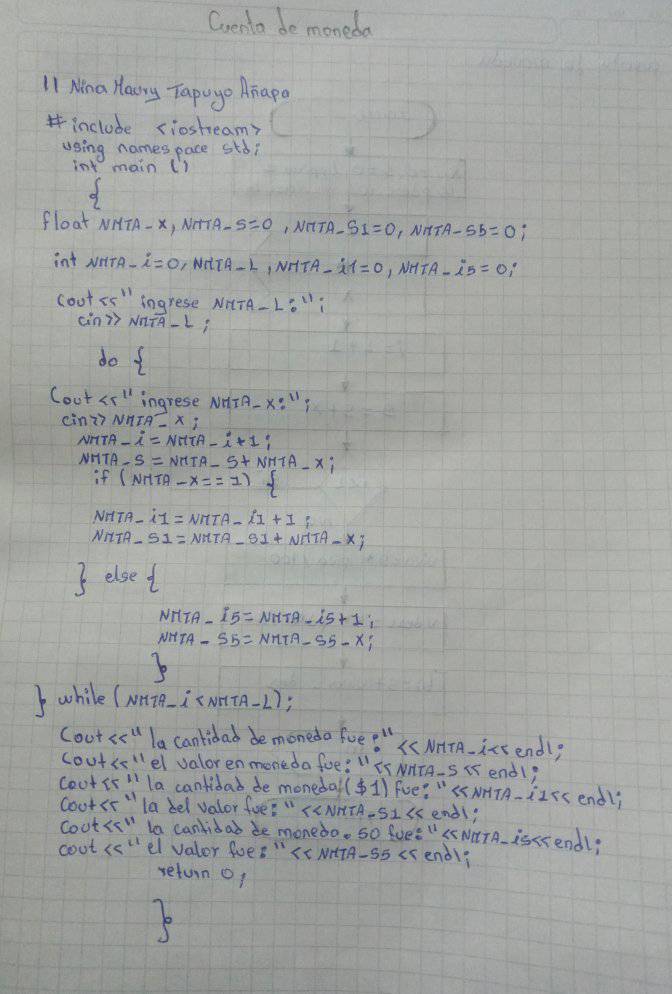 Cuenta de moneda
11 Nina Maury Tapuyo Añapa
# include <iostream>
using namespace std;
int main ()
{
float NMTA_X, NMTA_S=0, NMTA_S1=0, NMTA_S5=0;
int NMTA_i=0, NMTA_L, NMTA_i1=0, NMTA_i5=0;
Cout<<"ingrese NMTA_L:";
cin>> NMTA_L;
do {
Cout<<"ingrese NMTA_X:";
cin>> NMTA_X;
NMTA_i = NMTA_i+1;
NMTA_S = NMTA_S + NMTA_X;
if (NMTA_X==1) {
NMTA_i1 = NMTA_i1 + 1;
NMTA_S1 = NMTA_S1 + NMTA_X;
} else {
NMTA_i5 = NMTA_i5+1;
NMTA_S5 = NMTA_S5-X;
}
} while (NMTA_i < NMTA_L);
Cout<<"la cantidad de moneda fue:"<<NMTA_i<< endl;
Cout<<"el valor en moneda fue:"<<NMTA_S<< endl;
Cout<<"la cantidad de moneda ($1) fue:"<<NMTA_i1<< endl;
Cout<<"la del valor fue:"<<NMTA_S1<< endl;
Cout<<"la cantidad de moneda.50 fue:"<<NMTA_i5<<endl;
cout<<"el valor fue:"<<NMTA_S5<<endl;
return 0;
}